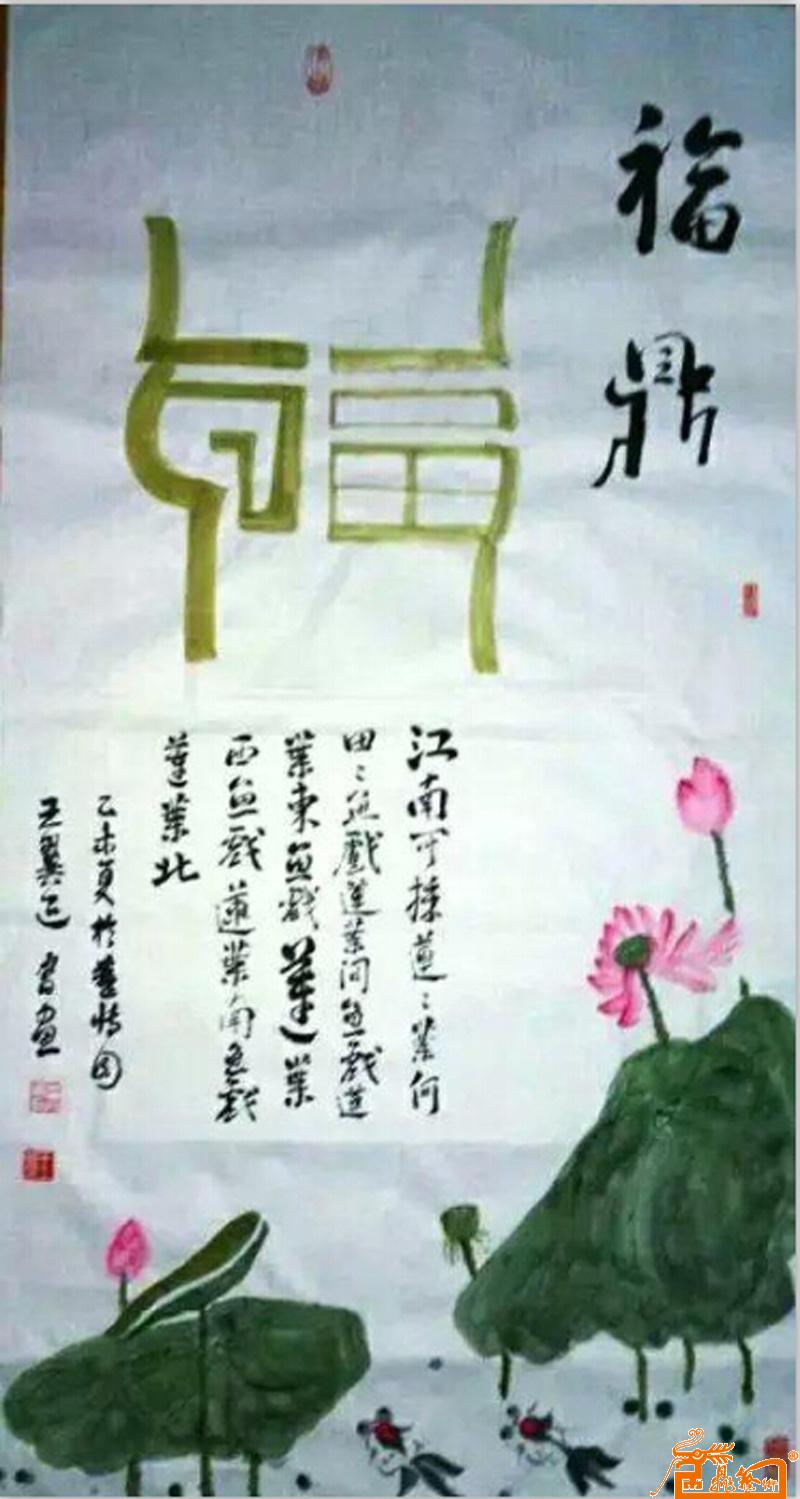 福鼎
江南可採蓮〻葉何
田〻魚戲蓮葉间魚戲蓮
葉東魚戲蓮葉
西魚戲蓮葉南魚戲
蓮葉北
乙未夏於
王翼 书画